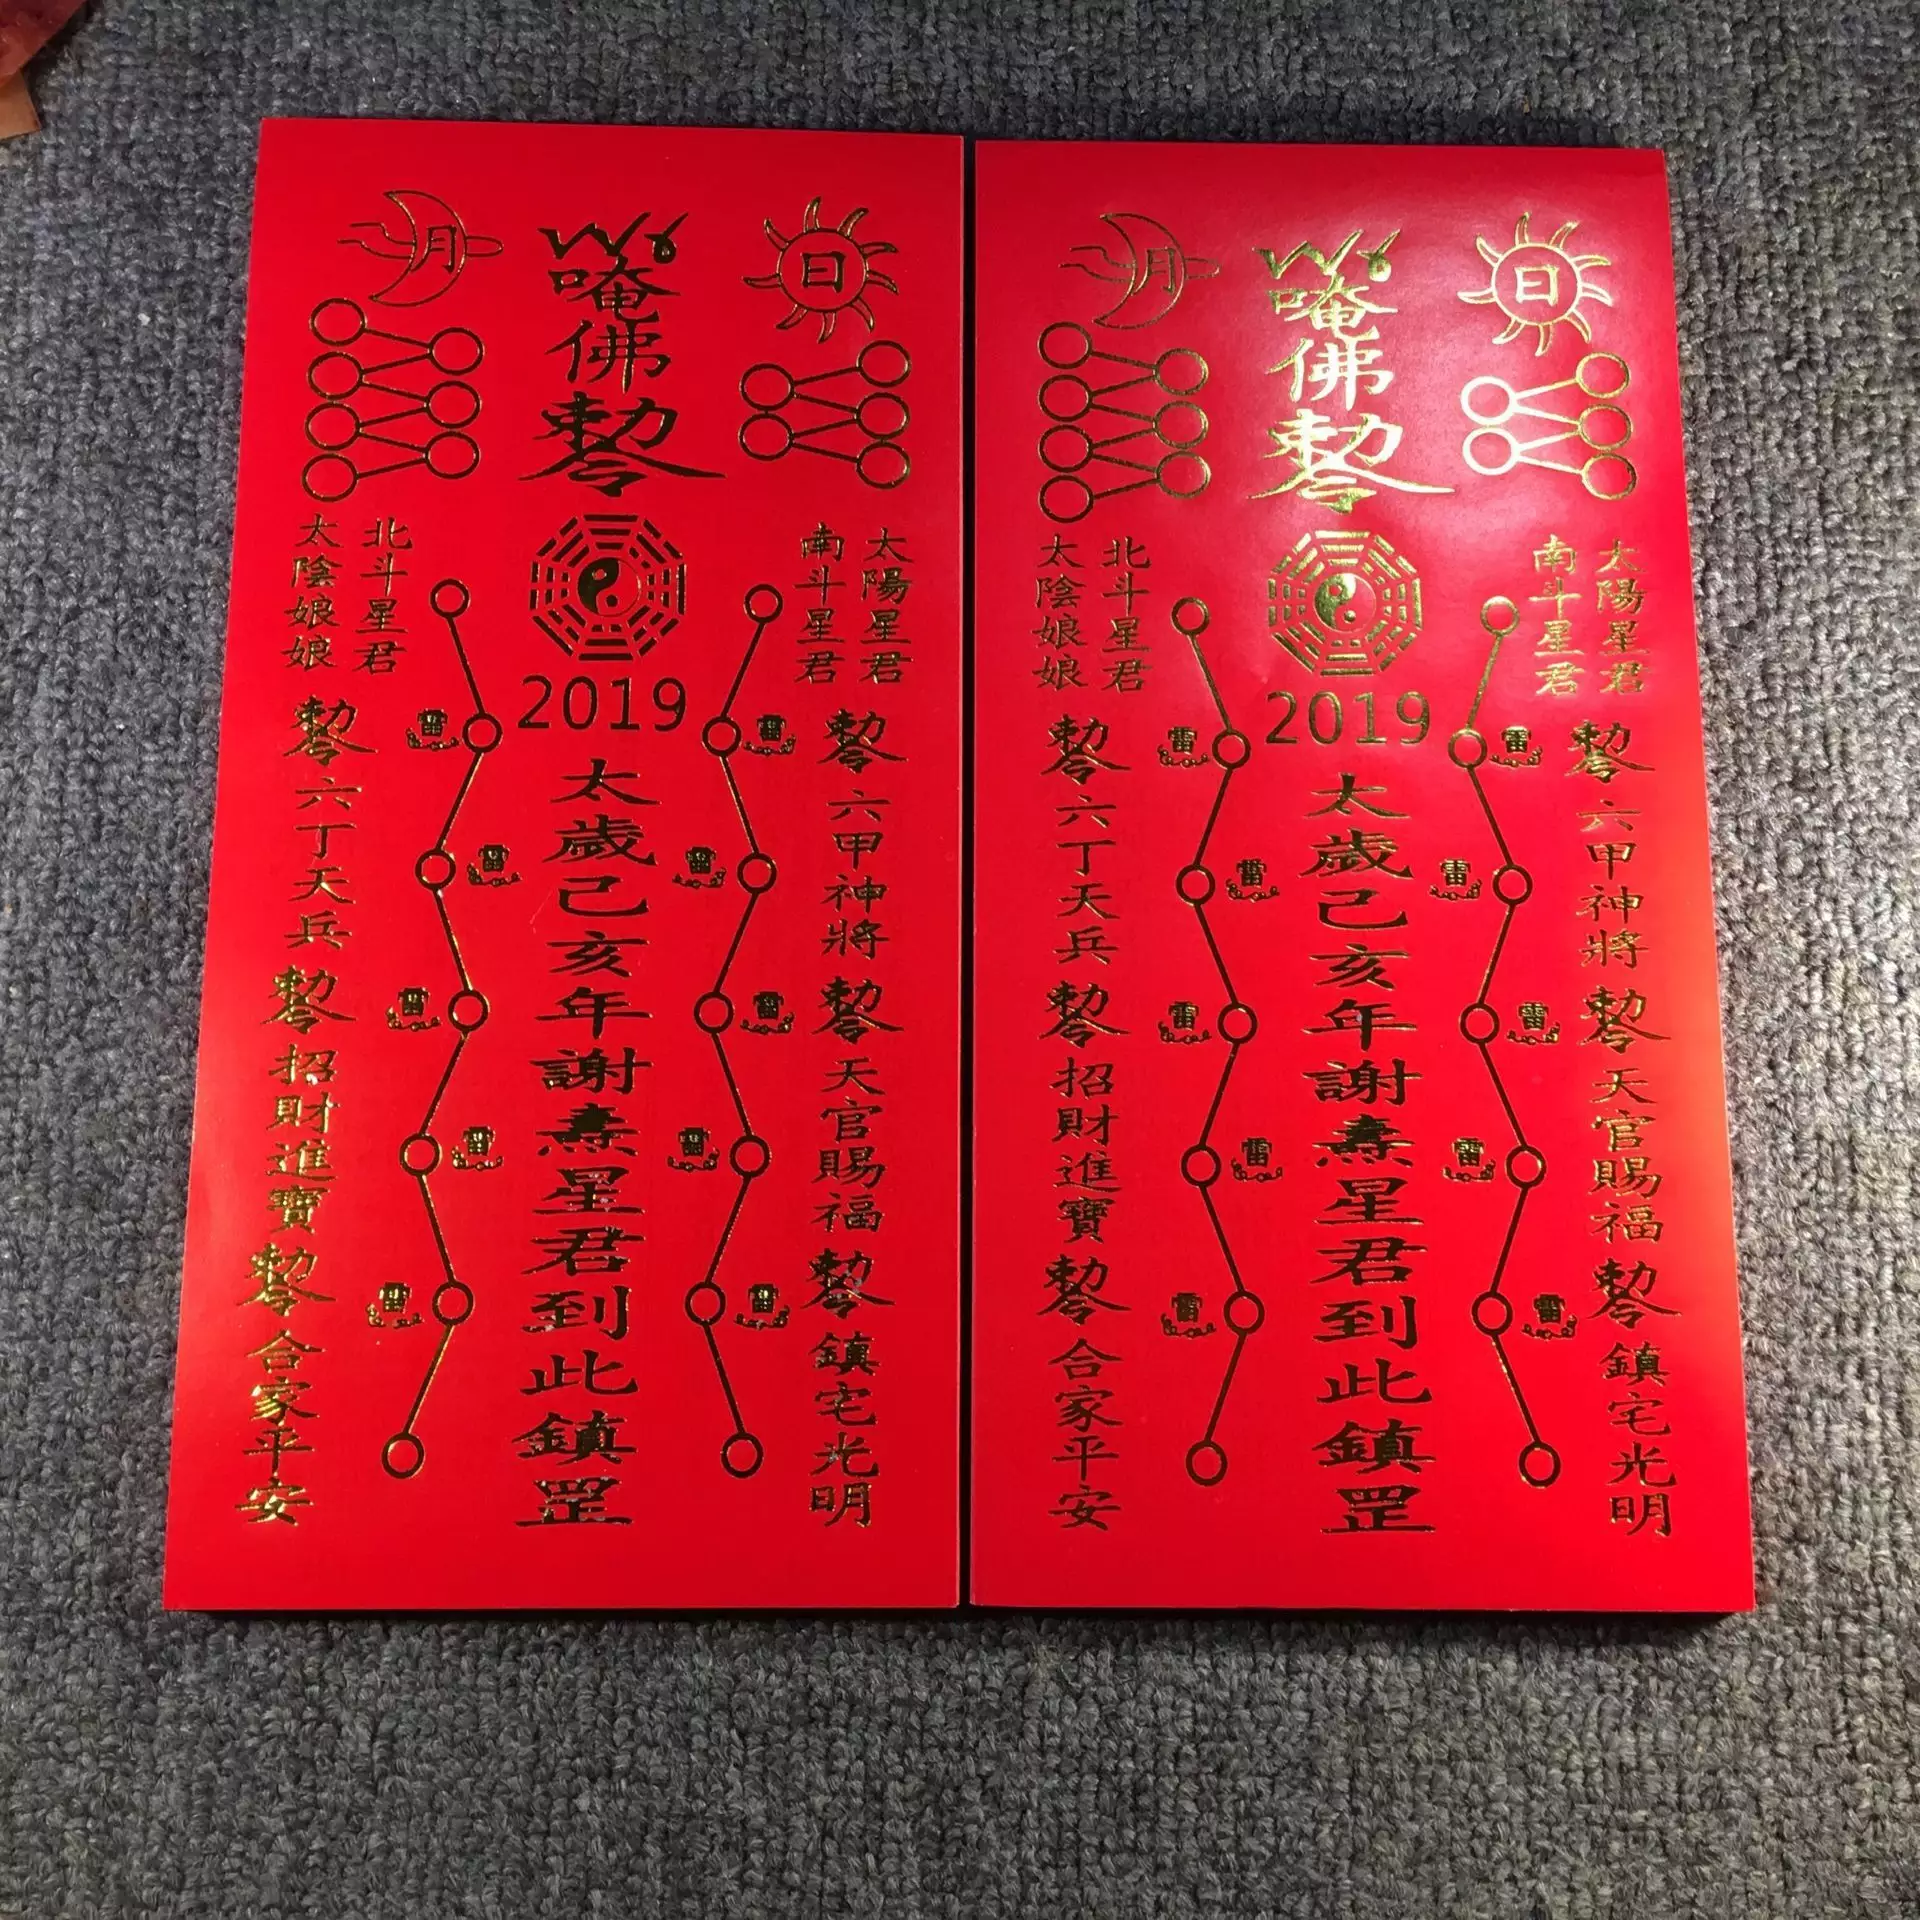 月
唵
佛
勅令
日
太陰娘娘
北斗星君
南斗星君
太陽星君
2019
太歲己亥年謝燾星君到此鎮罡
勅令六丁天兵勅令招財進寶勅令合家平安
勅令六甲神將勅令天官賜福勅令鎮宅光明
雷
雷
雷
雷
雷
雷
雷
雷
雷
雷
月
唵
佛
勅令
日
太陰娘娘
北斗星君
南斗星君
太陽星君
2019
太歲己亥年謝燾星君到此鎮罡
勅令六丁天兵勅令招財進寶勅令合家平安
勅令六甲神將勅令天官賜福勅令鎮宅光明
雷
雷
雷
雷
雷
雷
雷
雷
雷
雷